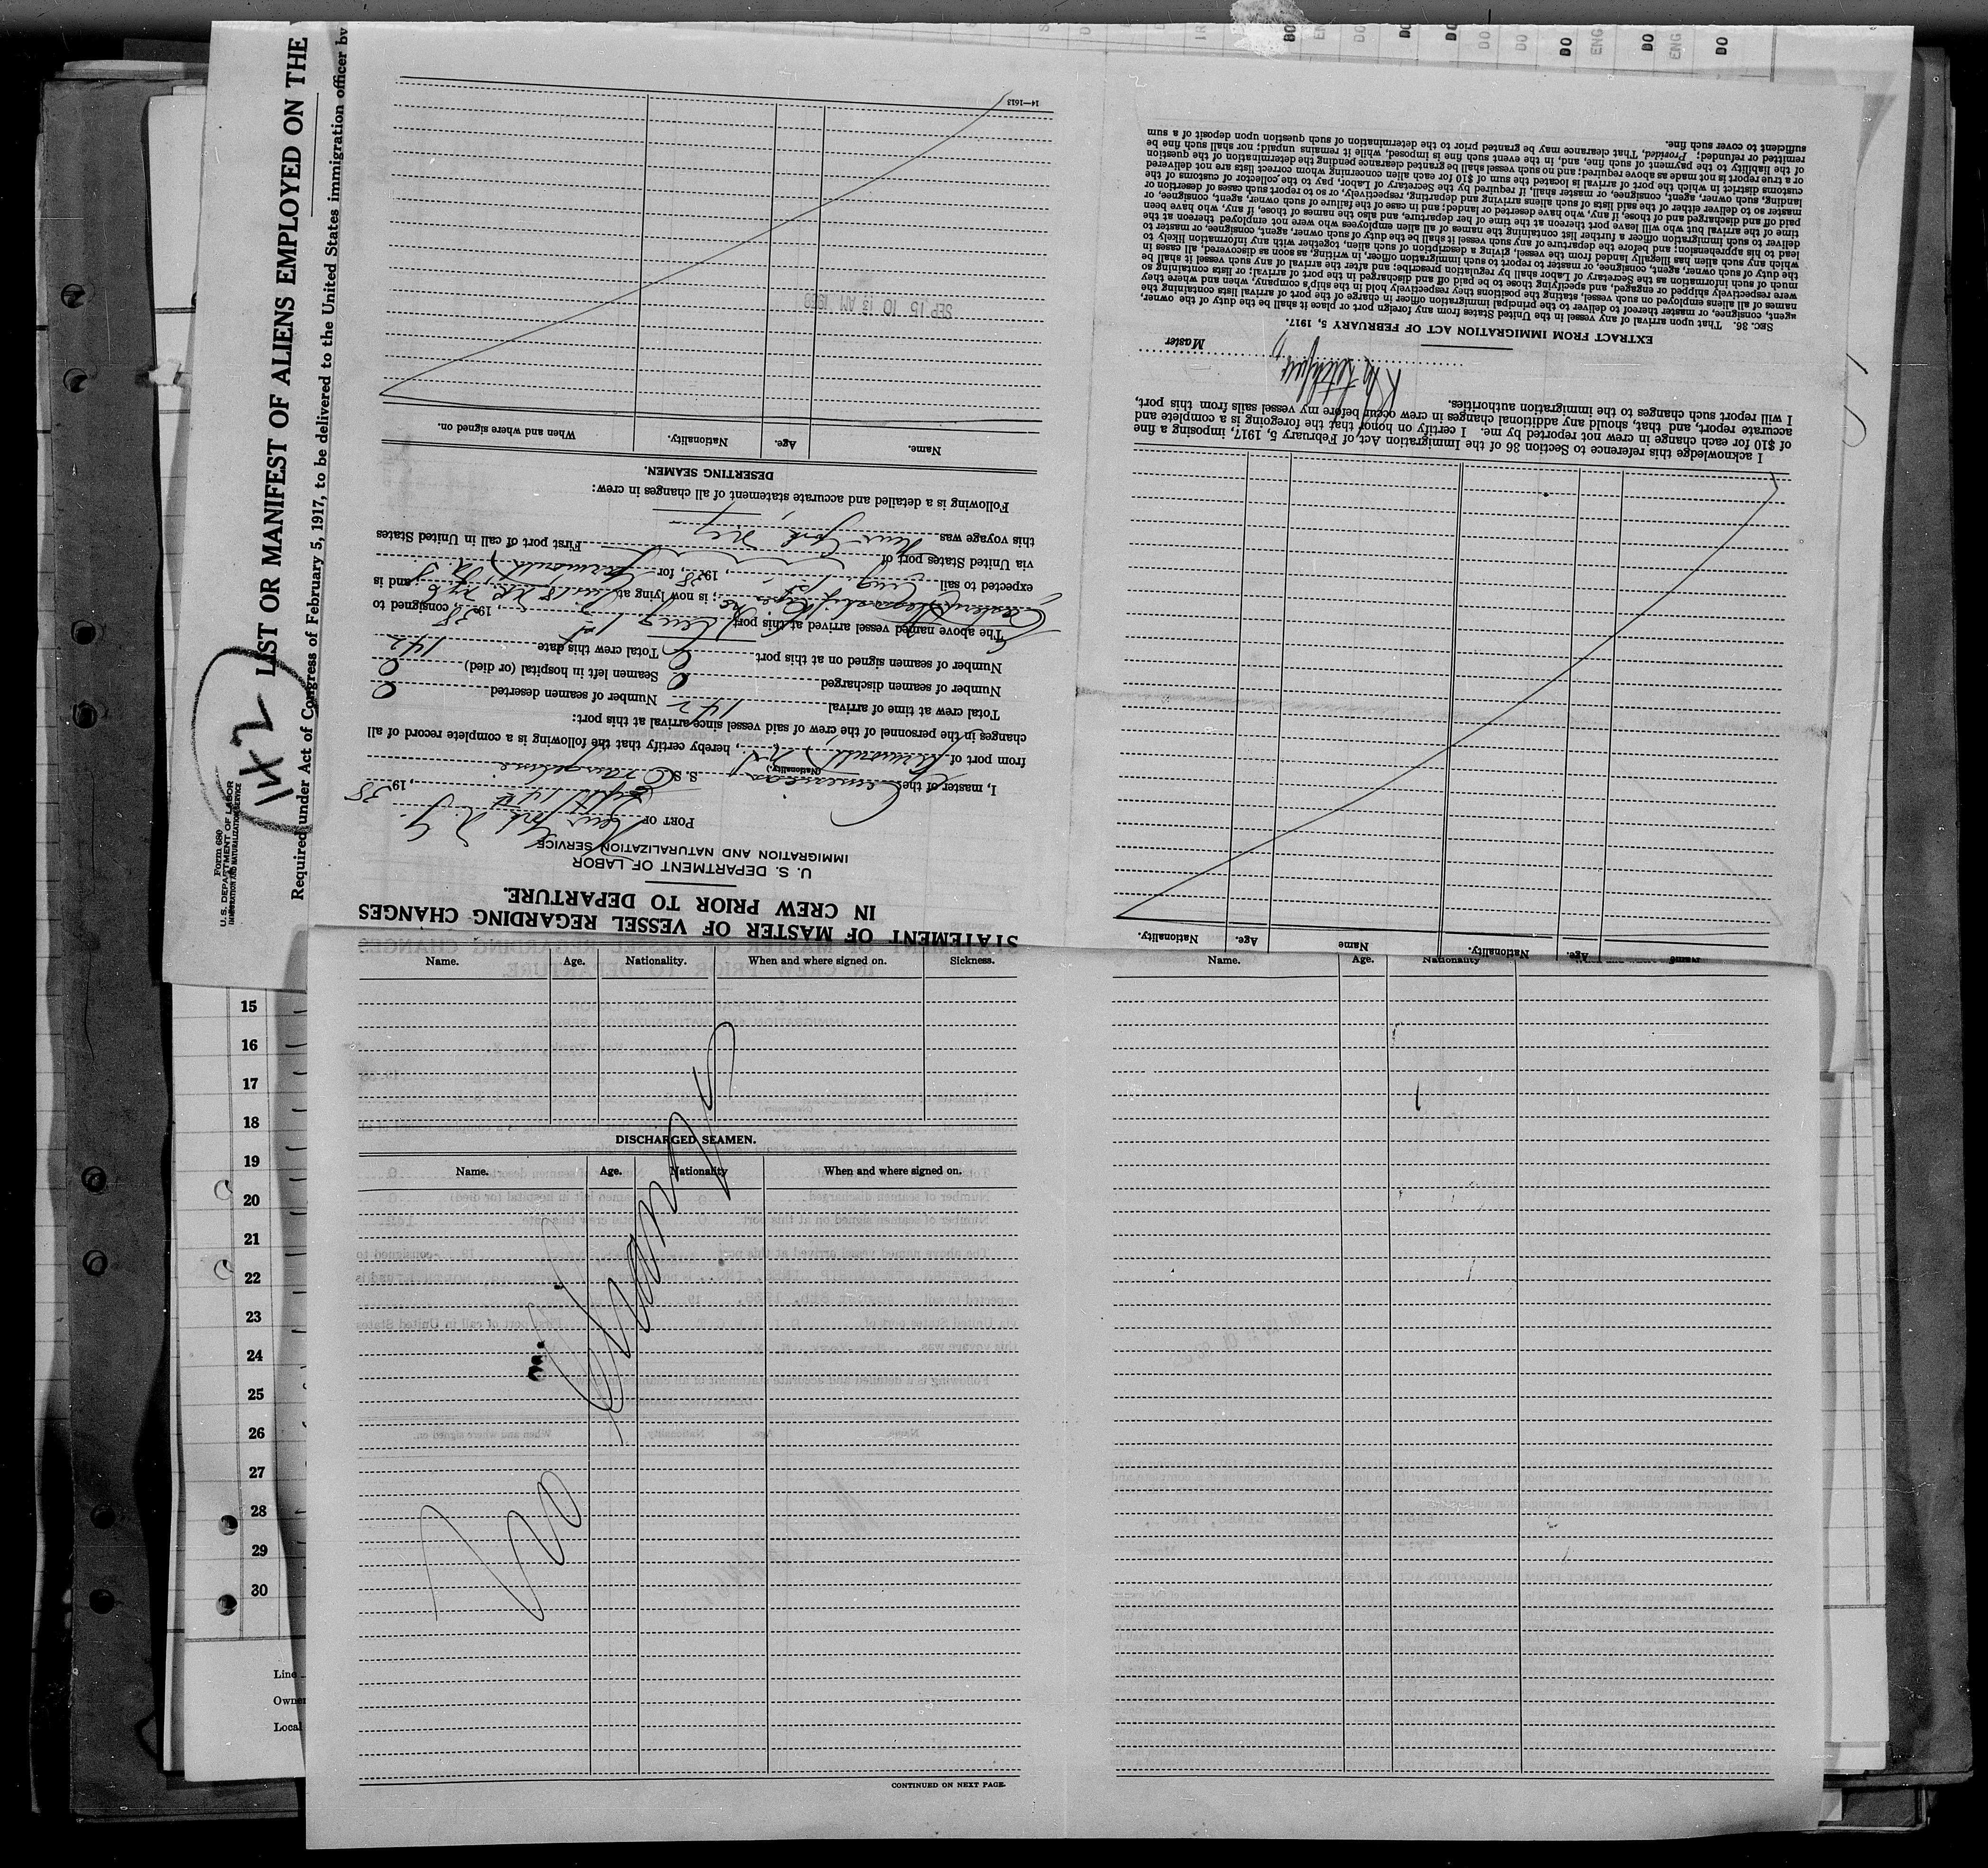 Form 680
U.S. DEPARTMENT OF LABOR
IMMIGRATION AND NATURALIZATION SERVICE
142
LIST OR MANIFEST OF ALIENS EMPLOYED ON THE
Required under Act of Congress of February 5, 1917, to be delivered to the United States immigration officer by
STATEMENT OF MASTER OF VESSEL REGARDING CHANGES
IN CREW PRIOR TO DEPARTURE.
U. S. DEPARTMENT OF LABOR
IMMIGRATION AND NATURALIZATION SERVICE
PORT OF New York N. Y.
Sept 14th, 1938
I, master of the American S. S. Evangeline
(Nationality.)
from port of Yarmouth N.S., hereby certify that the following is a complete record of all
changes in the personnel of the crew of said vessel since arrival at this port:
Total crew at time of arrival 142 Number of seamen deserted 0
Number of seamen discharged 0 Seamen left in hospital (or died) 0
Number of seamen signed on at this port 0 Total crew this date 142
The above named vessel arrived at this port Aug 1st, 1938, consigned to
Eastern Steamship Lines Inc; is now lying at Pier 18 and is
expected to sail Aug 1st, 1938, for Yarmouth
via United States port of First port of call in United States
this voyage was New York N.Y.
Following is a detailed and accurate statement of all changes in crew:
DESERTING SEAMEN.
Name. Age. Nationality. When and where signed on.
SEP 15 10 13 AM 1938
14—1613
Name. Age. Nationality. Name Age. Nationality.
I acknowledge this reference to Section 36 of the Immigration Act of February 5, 1917, imposing a fine
of $10 for each change in crew not reported by me. I certify on honor that the foregoing is a complete and
accurate report, and that, should any additional changes in crew occur before my vessel sails from this port,
I will report such changes to the immigration authorities.
Master
EXTRACT FROM IMMIGRATION ACT OF FEBRUARY 5, 1917.
SEC. 36. That upon arrival of any vessel in the United States from any foreign port or place it shall be the duty of the owner,
agent, consignee, or master thereof to deliver to the principal immigration officer in charge of the port of arrival lists containing the
names of all aliens employed on such vessel, stating the positions they respectively hold in the ship's company, when and where they
were respectively shipped or engaged, and specifying those to be paid off and discharged in the port of arrival; or lists containing so
much of such information as the Secretary of Labor shall by regulation prescribe; and after the arrival of any such vessel it shall be
the duty of such owner, agent, consignee, or master to report to such immigration officer, in writing, as soon as discovered, all cases in
which any such alien has illegally landed from the vessel, giving a description of such alien, together with any information likely to
lead to his apprehension; and before the departure of any such vessel it shall be the duty of such owner, agent, consignee, or master to
deliver to such immigration officer a further list containing the names of all alien employees who were not employed thereon at the
time of the arrival but who will leave port thereon at the time of her departure, and also the names of those, if any, who have been
paid off and discharged and of those, if any, who have deserted or landed; and in case of the failure of such owner, agent, consignee, or
master so to deliver either of the said lists of such aliens arriving and departing, respectively, or so to report such cases of desertion or
landing, such owner, agent, consignee, or master shall, if required by the Secretary of Labor, pay to the collector of customs of the
customs district in which the port of arrival is located the sum of $10 for each alien concerning whom correct lists are not delivered
or a true report is not made as above required; and no such vessel shall be granted clearance pending the determination of the question
of the liability to the payment of such fine, and, in the event such fine is imposed, while it remains unpaid; nor shall such fine be
remitted or refunded; Provided, That clearance may be granted prior to the determination of such question upon deposit of a sum
sufficient to cover such fine.
Name. Age. Nationality. When and where signed on. Sickness.
DISCHARGED SEAMEN.
Name. Age. Nationality When and where signed on.
No Change
CONTINUED ON NEXT PAGE.
Name. Age. Nationality
15
16
17
18
19
20
21
22
23
24
25
26
27
28
29
30
Line
Owner
Local
DO
ENG
DO
DO
DO
DO
DO
DO
ENG
DO
ENG
DO